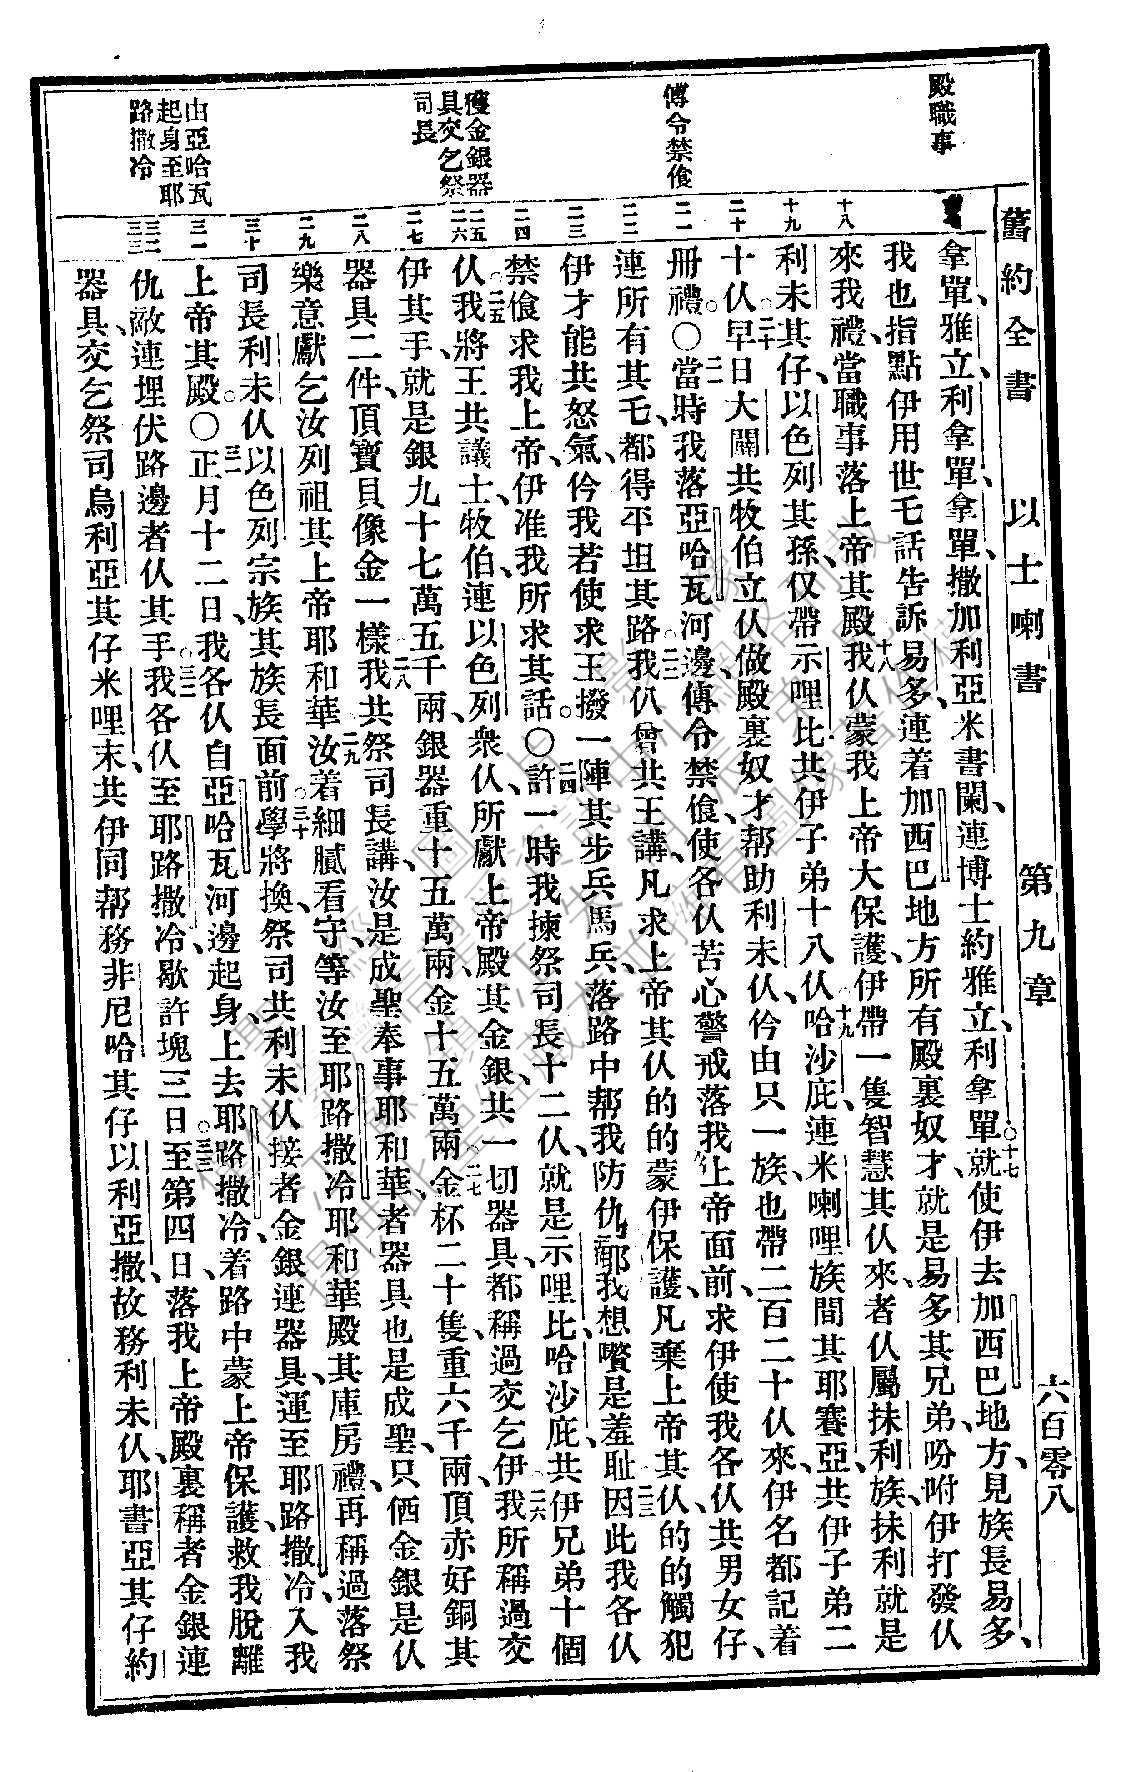 舊約全書 以士喇書 第九章 六百零八
殿職事
傳令禁飡
獲金銀器
具交乞祭
司長
由亞哈瓦
起身至耶
路撒冷
十八
十九
二十
二一
二二
二三
二四
二五
二六
二七
二八
二九
三十
三一
三二
三三
拿單、雅立、利拿單、拿單、撒加利亞、米書闌、連博士約雅立、利拿單、○十七就使伊去加西巴地方、見族長易多、
我也指點伊用世乇話告訴易多、連着加西巴地方所有殿裏奴才、就是易多其兄弟、吩咐伊打發仈
來我禮、當職事落上帝其殿、十八我仈蒙我上帝大保護、伊帶一隻智慧其仈來者仈屬抹利族、抹利就是
利未其仔、以色列其孫、仅帶示哩比共伊子弟十八仈、十九哈沙庇、連米喇哩族間其耶賽亞、共伊子弟二
十仈、二十早日大闢共牧伯立仈做殿裏奴才帮助利未仈、仱由只一族、也帶二百二十仈來、伊名都記着
册禮。○二一當時我落亞哈瓦河邊、傳令禁飡、使各仈苦心警戒落我上帝面前、求伊使我各仈共男女仔、
連所有其乇、都得平坦其路、二二我仈曾共王講、凡求上帝其仈的的蒙伊保護、凡棄上帝其仈、的的觸犯
伊才能共怒氣、仱我若使求王撥一陣其步兵馬兵、落路中帮我防仇敵、我想嚽是羞耻、二三因此我各仈
禁飡求我上帝、伊准我所求其話。○二四許一時我揀祭司長十二仈、就是示哩比、哈沙庇、共伊兄弟十個
仈、二五我將王共議士、牧伯、連以色列衆仈、所獻上帝殿其金銀、共一切器具、都稱過交乞伊、二六我所稱過交
伊其手、就是銀九十七萬五千兩、銀器重十五萬兩、金十五萬兩、二七金杯二十隻、重六千兩、頂赤好銅其
器具二件、頂寶貝像金一樣、二八我共祭司長講、汝是成聖奉事耶和華、者器具也是成聖、只個金銀是仈
樂意獻乞汝列祖其上帝耶和華、二九汝着細膩看守、等汝至耶路撒冷耶和華殿其庫房禮、再稱過落祭
司長利未仈、以色列宗族其族長面前、三十學將換祭司共利未仈、接者金銀連器具、運至耶路撒冷、入我
上帝其殿。○三一正月十二日、我各仈自亞哈瓦河邊起身、上去耶路撒冷、着路中蒙上帝保護、救我脫離
仇敵連埋伏路邊者仈其手、三二我各仈至耶路撒冷、歇許塊三日、三三至第四日、落我上帝殿裏稱者金銀連
器具、交乞祭司烏利亞其仔米哩末、共伊同帮務非尼哈其仔以利亞撒、故務利未仈、耶書亞其仔約